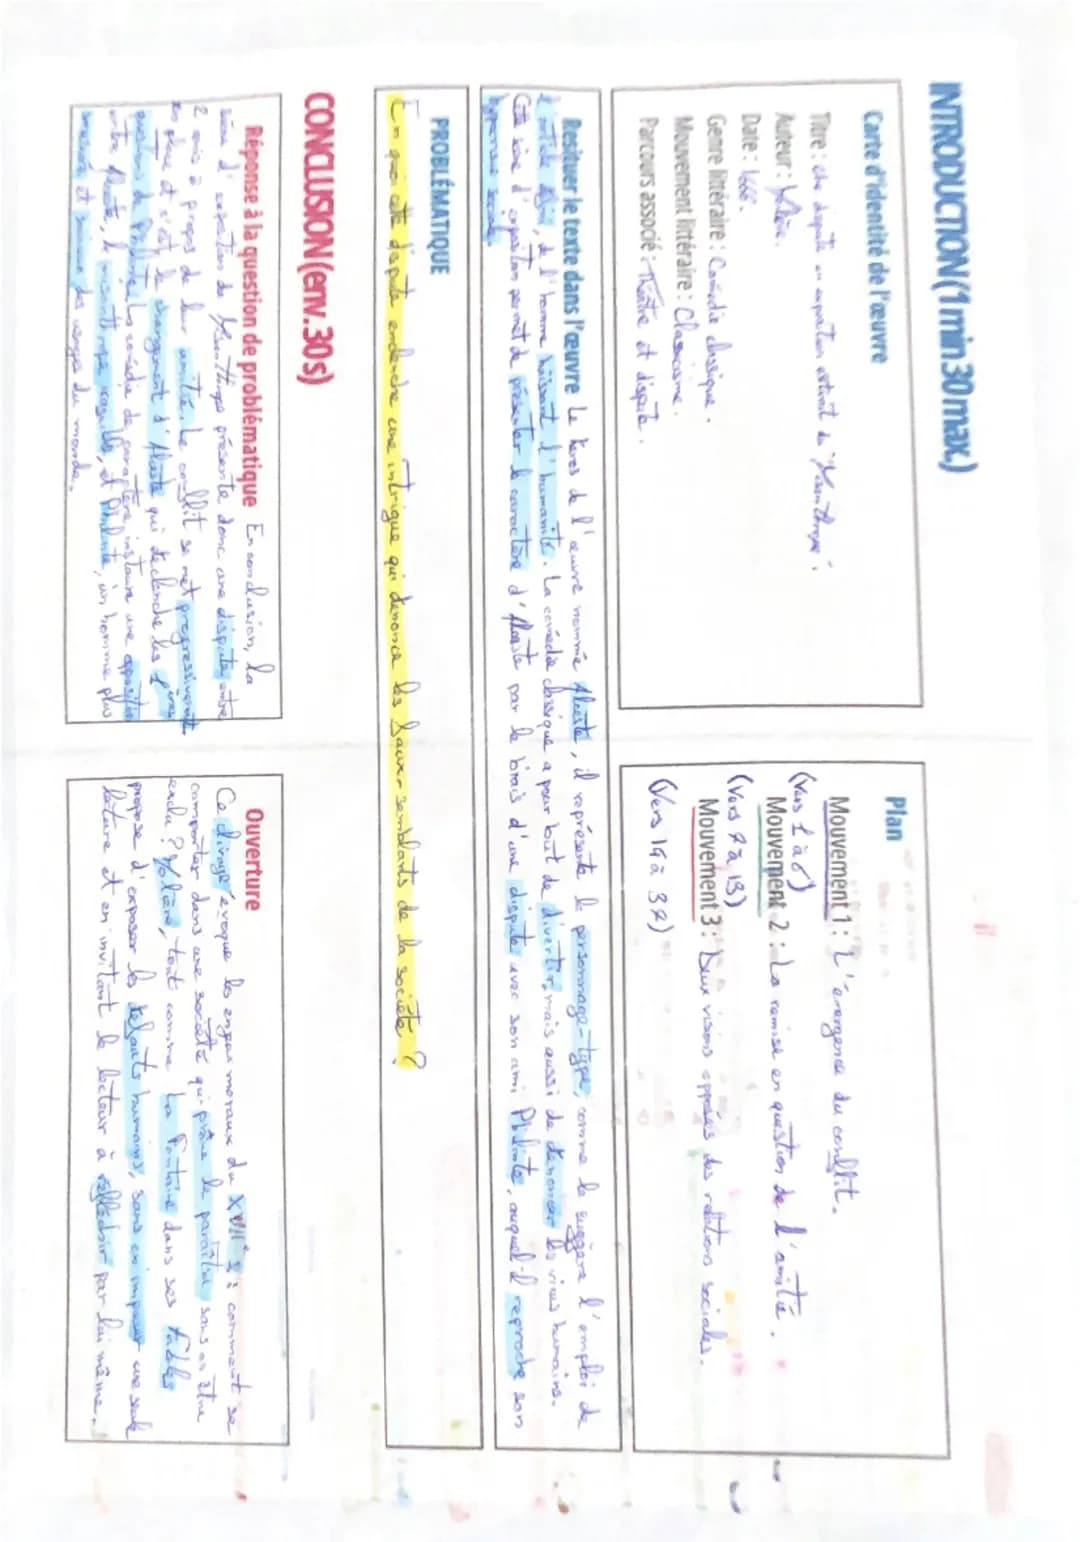 INTRODUCTION (1 min 30 max.)
Carte d'identité de l'œuvre
Titre : Une dispute en exposition extrait du "Misanthrope".
Auteur : Molière.
Date : 1666.
Genre littéraire : Comédie classique.
Mouvement littéraire : Classicisme.
Parcours associé : Théâtre et dispute.
Plan
Mouvement 1 : L'émergence du conflit.
(Vers 1 à 6)
Mouvement 2 : La remise en question de l'amitié.
(Vers 7 à 13)
Mouvement 3 : Deux visions opposées des relations sociales.
(Vers 14 à 37)
Resituer le texte dans l'œuvre Le héros de l'œuvre nommé Alceste, il représente le personnage-type, comme le suggère l'emploi de
l'article défini, de l'homme haïssant l'humanité. La comédie classique a pour but de divertir, mais aussi de dénoncer les vices humains.
Cette scène d'exposition permet de présenter le caractère d'Alceste par le biais d'une dispute avec son ami Philinte, auquel il reproche son
hypocrisie sociale.
PROBLÉMATIQUE
En quoi cette dispute enclenche une intrigue qui dénonce les faux-semblants de la société ?
CONCLUSION (env. 30 s)
Réponse à la question de problématique En conclusion, la
scène d'exposition du Misanthrope présente donc une dispute entre
2 amis à propos de leur amitié. Le conflit se met progressivement
en place et c'est le changement d'Alceste qui déclenche les
questions de Philinte. La comédie de caractère instaure une opposition
entre Alceste, le misanthrope, et Philinte, un homme plus
et soucieux des usages du monde.
Ouverture
Ce clivage évoque les enjeux moraux du XVIIe s : comment se
comporter dans une société qui prône le paraître sans en être
exclu ? Molière, tout comme La Fontaine dans ses fables
propose d'exposer les défauts humains, sans en imposer une seule
lecture et en invitant le lecteur à réfléchir par lui même.